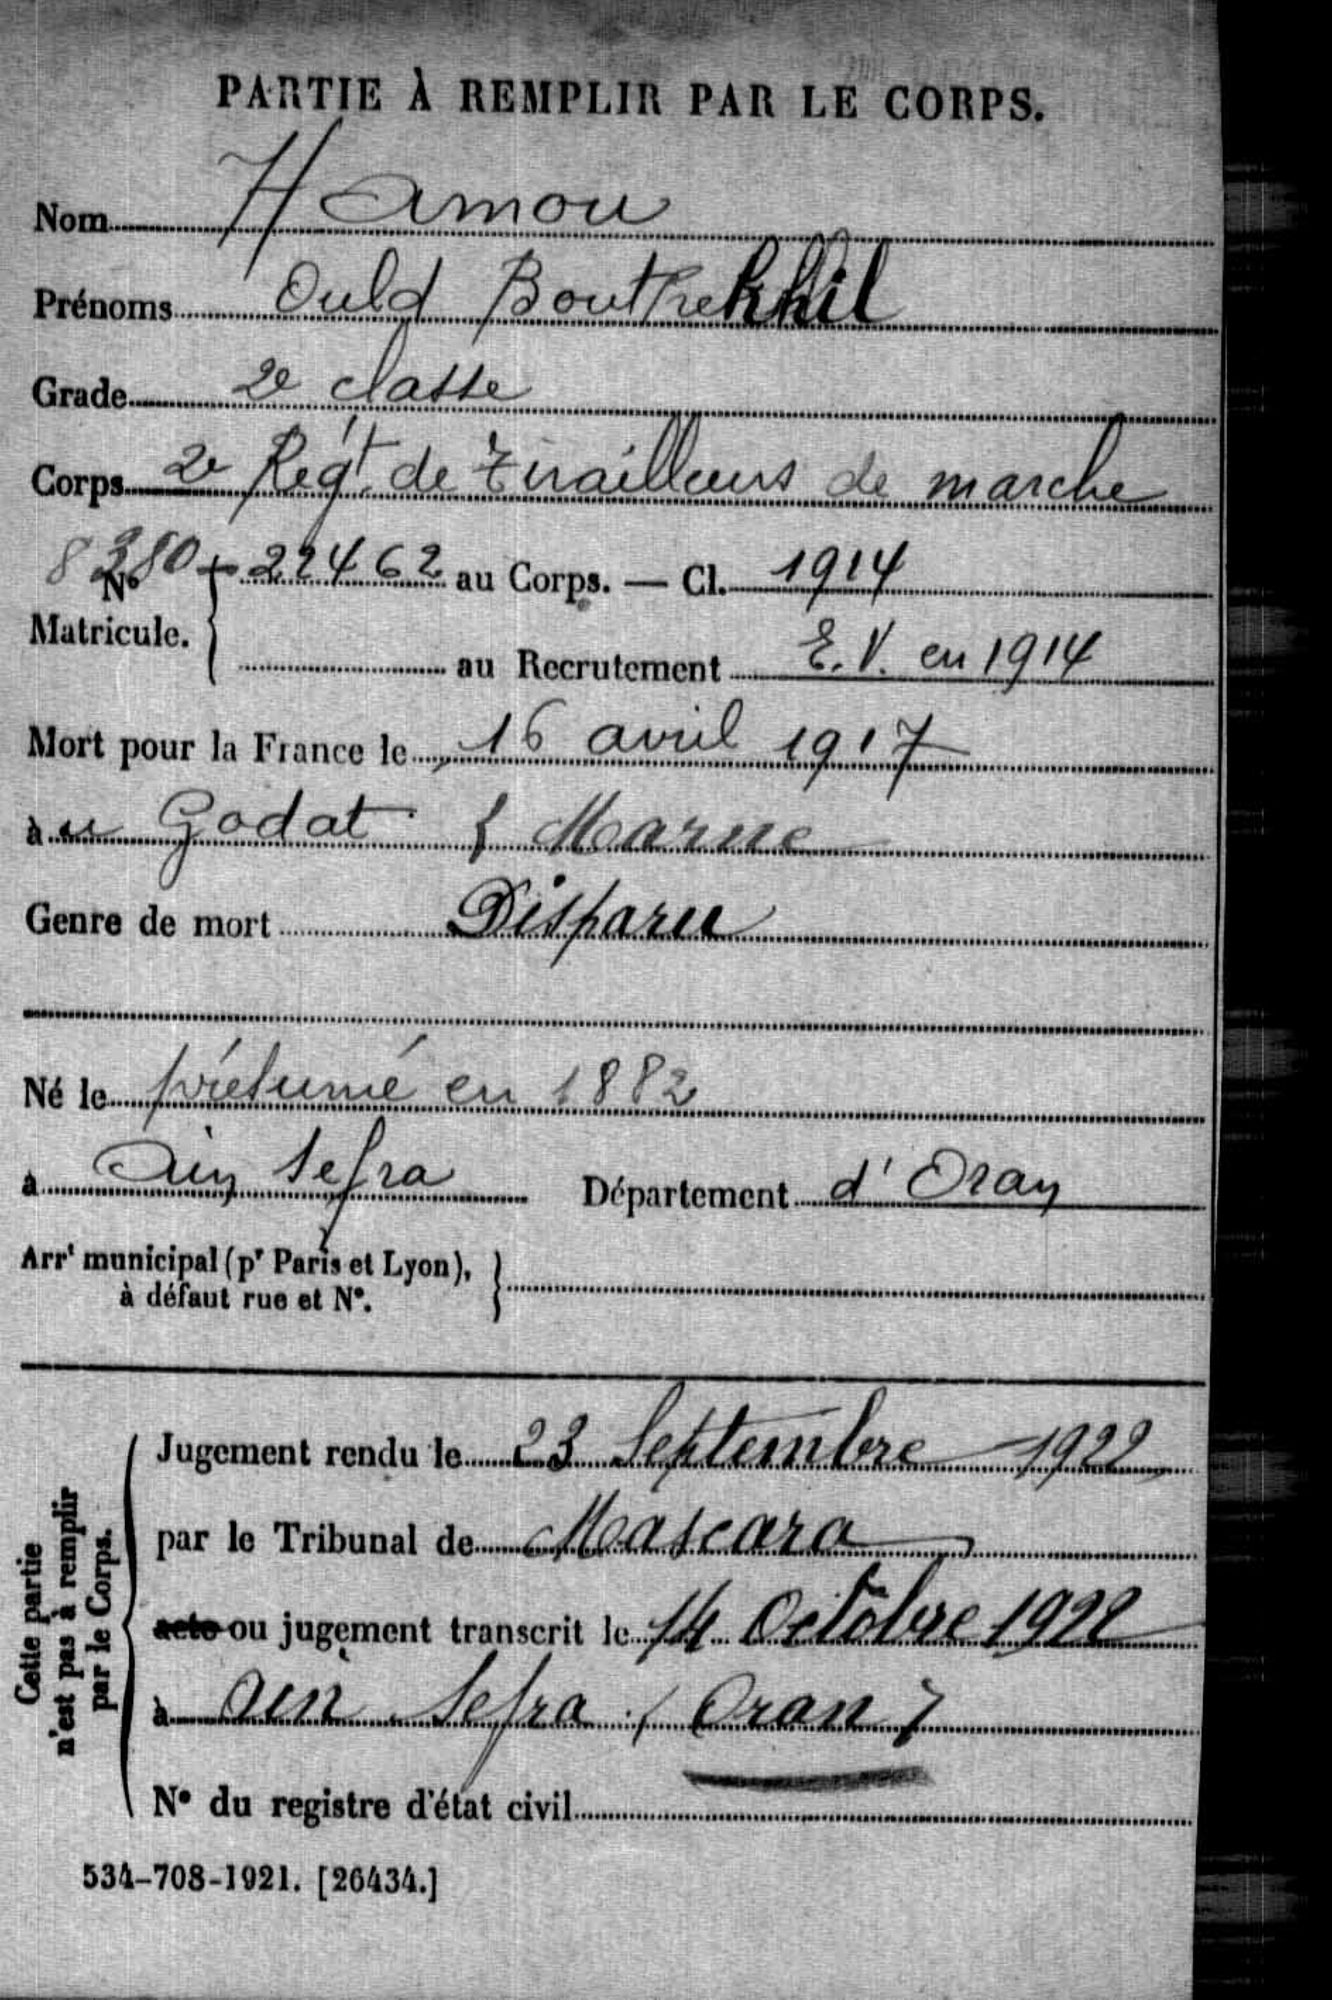 PARTIE À REMPLIR PAR LE CORPS.
Nom Hamou
Prénoms Ould Bouthekhil
Grade 2e classe
Corps 2e Régt. de tirailleurs de marche
8380 + 22462 au Corps. — Cl. 1914
No Matricule.
au Recrutement E.V. en 1914
Mort pour la France le 16 avril 1917
à au Godat ( Marne
Genre de mort Disparu
Né le présumé en 1882
à Ain Sefra Département d'Oran
Arrt municipal (pr Paris et Lyon),
à défaut rue et N°.
Cette partie
n'est pas à remplir
par le Corps.
Jugement rendu le 23 Septembre 1922
par le Tribunal de Mascara
acte ou jugement transcrit le 14 Octobre 1922
à Ain Sefra ( Oran )
N° du registre d'état civil
534-708-1921. [26434.]